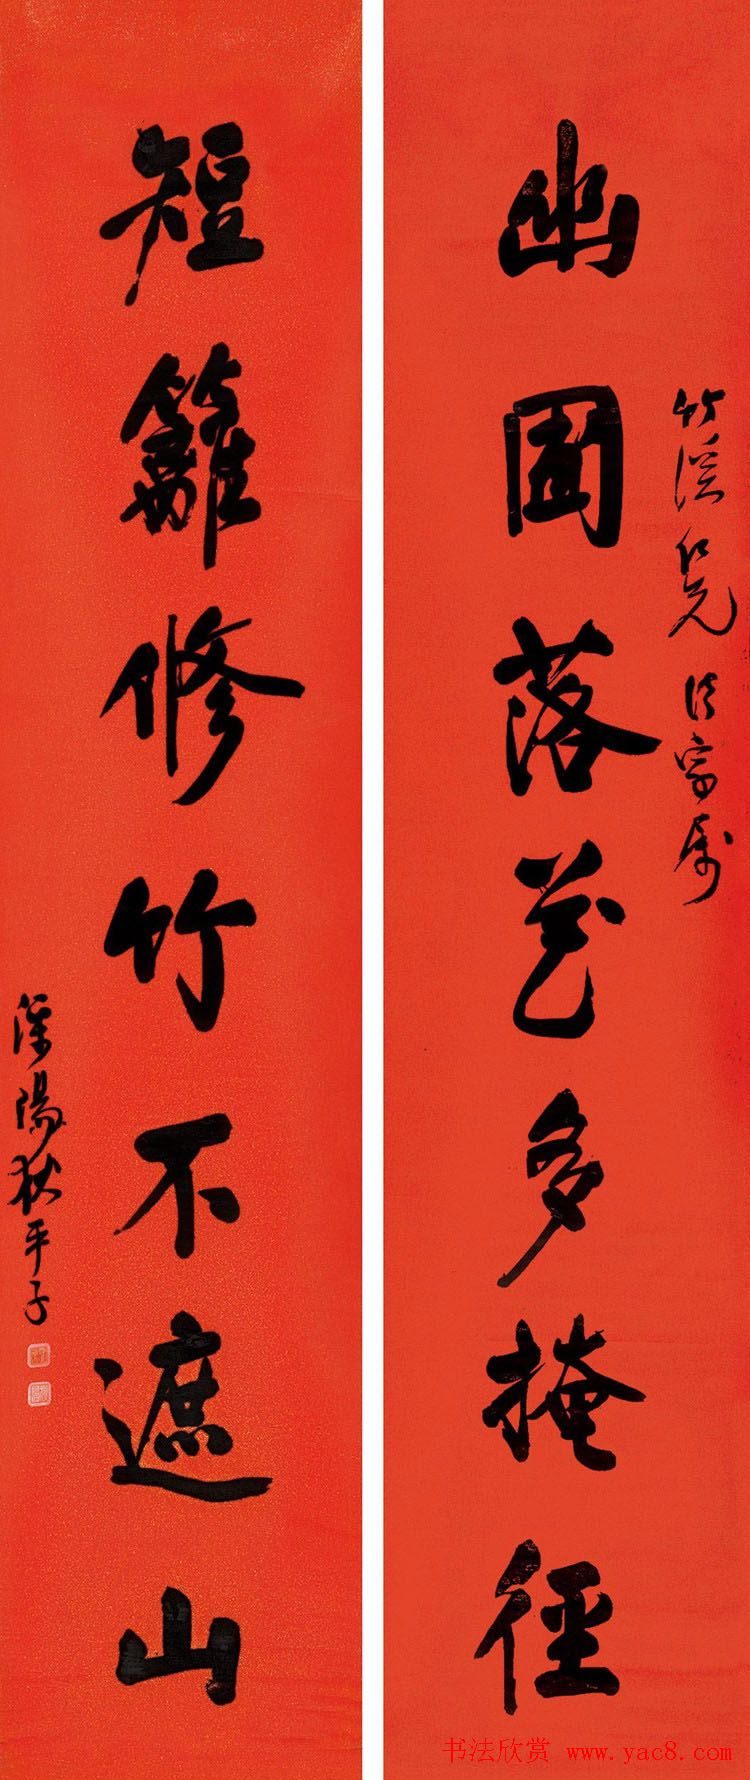 幽圃落花多掩徑
竹溪仁兄 法家属
短籬修竹不遮山
溧陽狄平子
书法欣赏 www.yac8.com